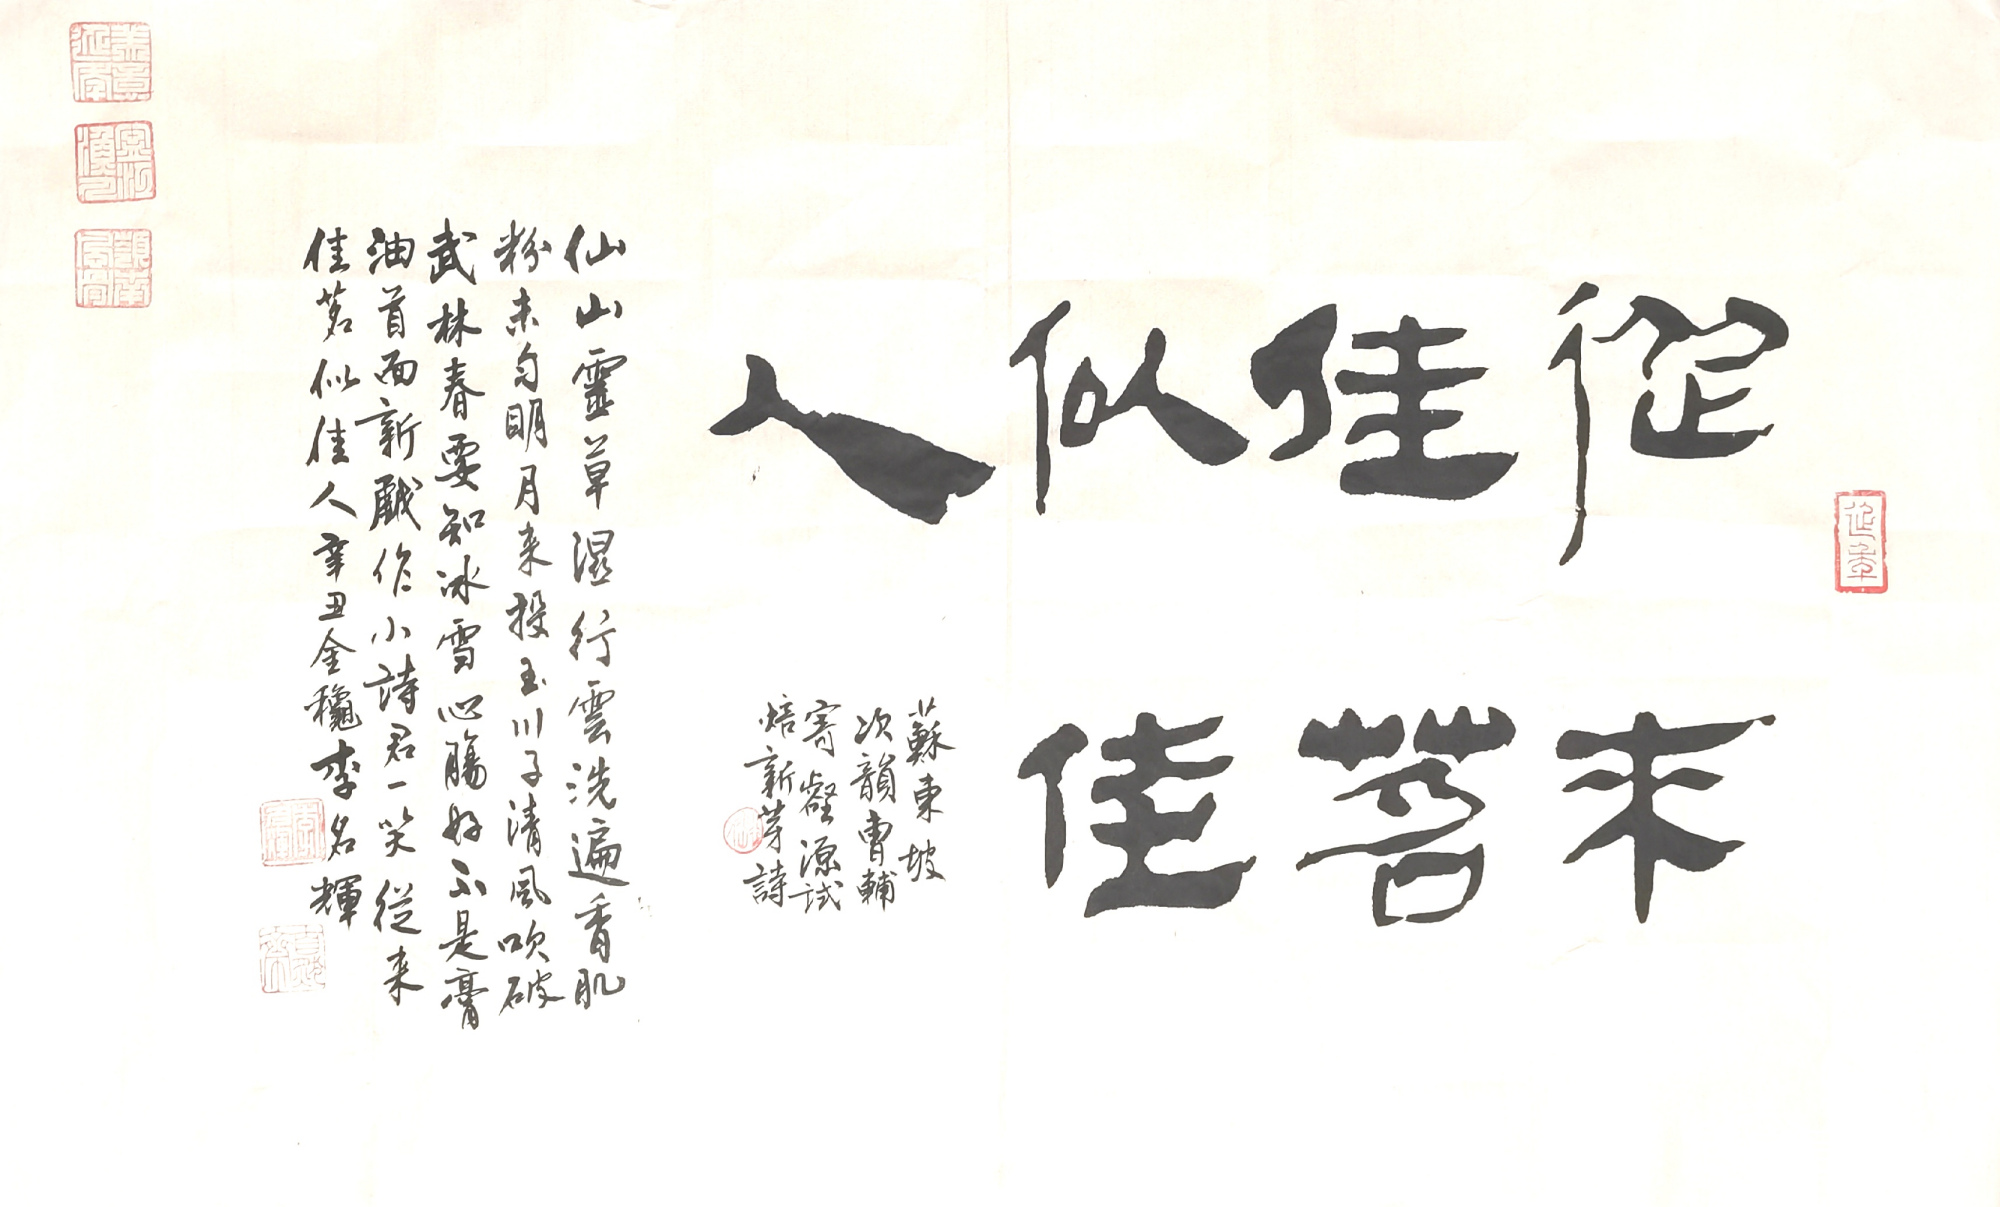 從来
佳茗
似佳
人
蘇東坡
次韻曹輔
寄壑源試
焙新芽詩
仙山靈草濕行雲洗遍香肌
粉未勻明月来投玉川子清風吹破
武林春要知冰雪心腸好不是膏
油首面新戲作小詩君一笑從来
佳茗似佳人辛丑金龝李名輝
延年